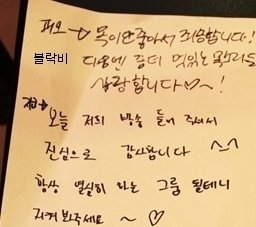 피오 → 목이 안좋아서 죄송합니다!
블락비
다음엔 좀더 멋있는 목소리로
사랑합니다♡~!
지코→
오늘 저희 방송 들어 주셔서
진심으로 감사합니다 ^_^
항상 열심히 하는 그룹 될테니
지켜봐주세요 ~ ♡